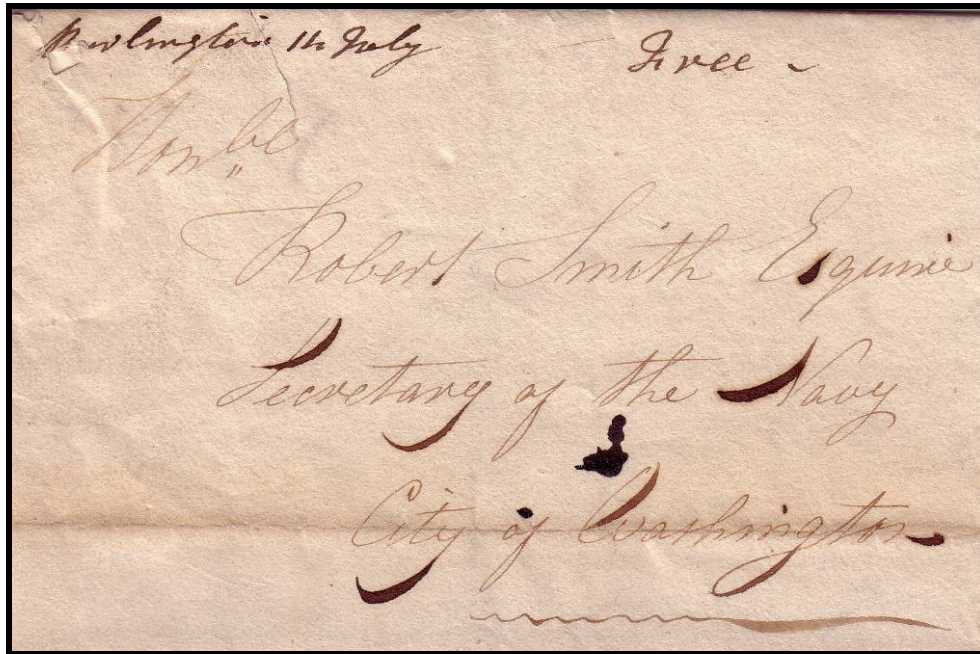 Burlington 14 July Free -
Honble
Robert Smith Esquire
Secretary of the Navy
City of Washington